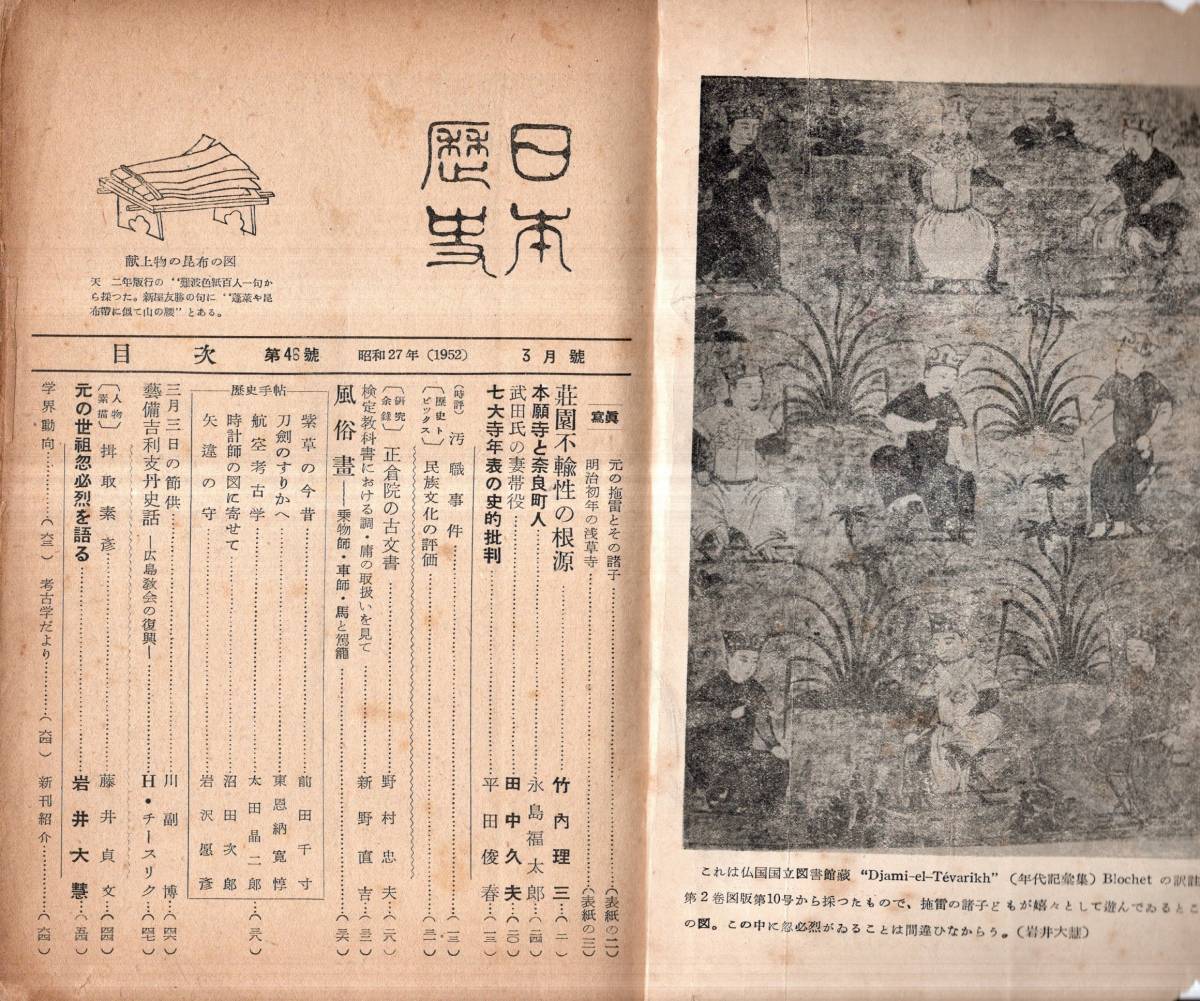 日本
歴史
献上物の昆布の図
天 二年版行の“難波色紙百人一句か
ら採つた。新屋友勝の句に“蓬萊や昆
布帯に似て山の腰”とある。
目次 第46號 昭和27年(1952) 3月號
寫眞
元の拖雷とその諸子……(表紙の二)
明治初年の浅草寺……(表紙の三)
莊園不輸性の根源……竹內理三…(二)
本願寺と奈良町人……永島福太郎…(二四)
武田氏の妻帯役……田中久夫…(二〇)
七大寺年表の史的批判 平田俊春…(一三)
(時評) 汚職事件……(一三)
〔歴史トピックス〕 民族文化の評価……(三一)
〔研究余録〕 正倉院の古文書……野村忠夫…(二八)
検定教科書における調・庸の取扱いを見て……新野直吉…(三二)
風俗畫――乗物師・車師・馬と駕籠……(三六)
歴史手帖
紫草の今昔……前田千寸
刀劍のすりかへ……東恩納寛惇
航空考古学……太田晶二郎…(三八)
時計師の図に寄せて……沼田次郎
矢違の守……岩沢愿彥
三月三日の節供……川副博…(四六)
藝備吉利支丹史話 ―広島敎会の復興― H・チースリク…(四七)
〔人物素描〕 揖取素彥……藤井貞文…(四四)
元の世祖忽必烈を語る……岩井大慧…(五四)
学界動向……(六三) 考古学だより……(六四) 新刊紹介……(六四)
これは仏国国立図書館藏“Djami-el-Tévarikh”(年代記彙集)Blochet の訳註
第2巻図版第10号から採つたもので、拖雷の諸子どもが嬉々として遊んでゐるとこ
の図。この中に忽必烈がゐることは間違ひなからう。(岩井大慧)